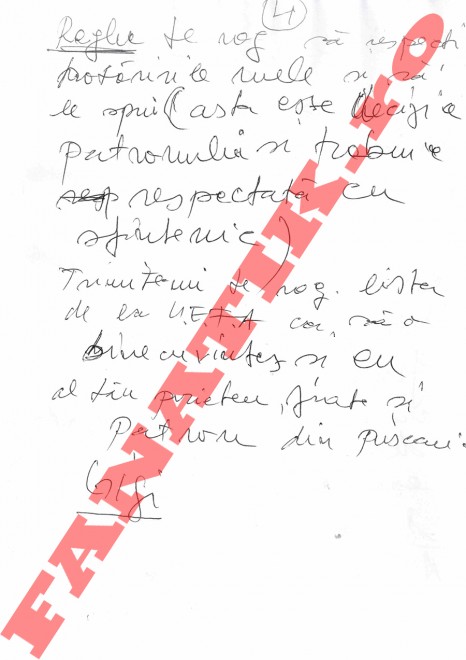 4
Reghe te rog să respecți
hotărîrile mele si să
le spui (asta este decizia
patronului si trebuie
resp respectată cu
sfintenie)
Trimitemi te rog. lista
de la U.E.F.A ca să o
binecuvintez si eu
al tău prieten, frate si
Patron din puscarie.
Gigi
FANATIK.RO